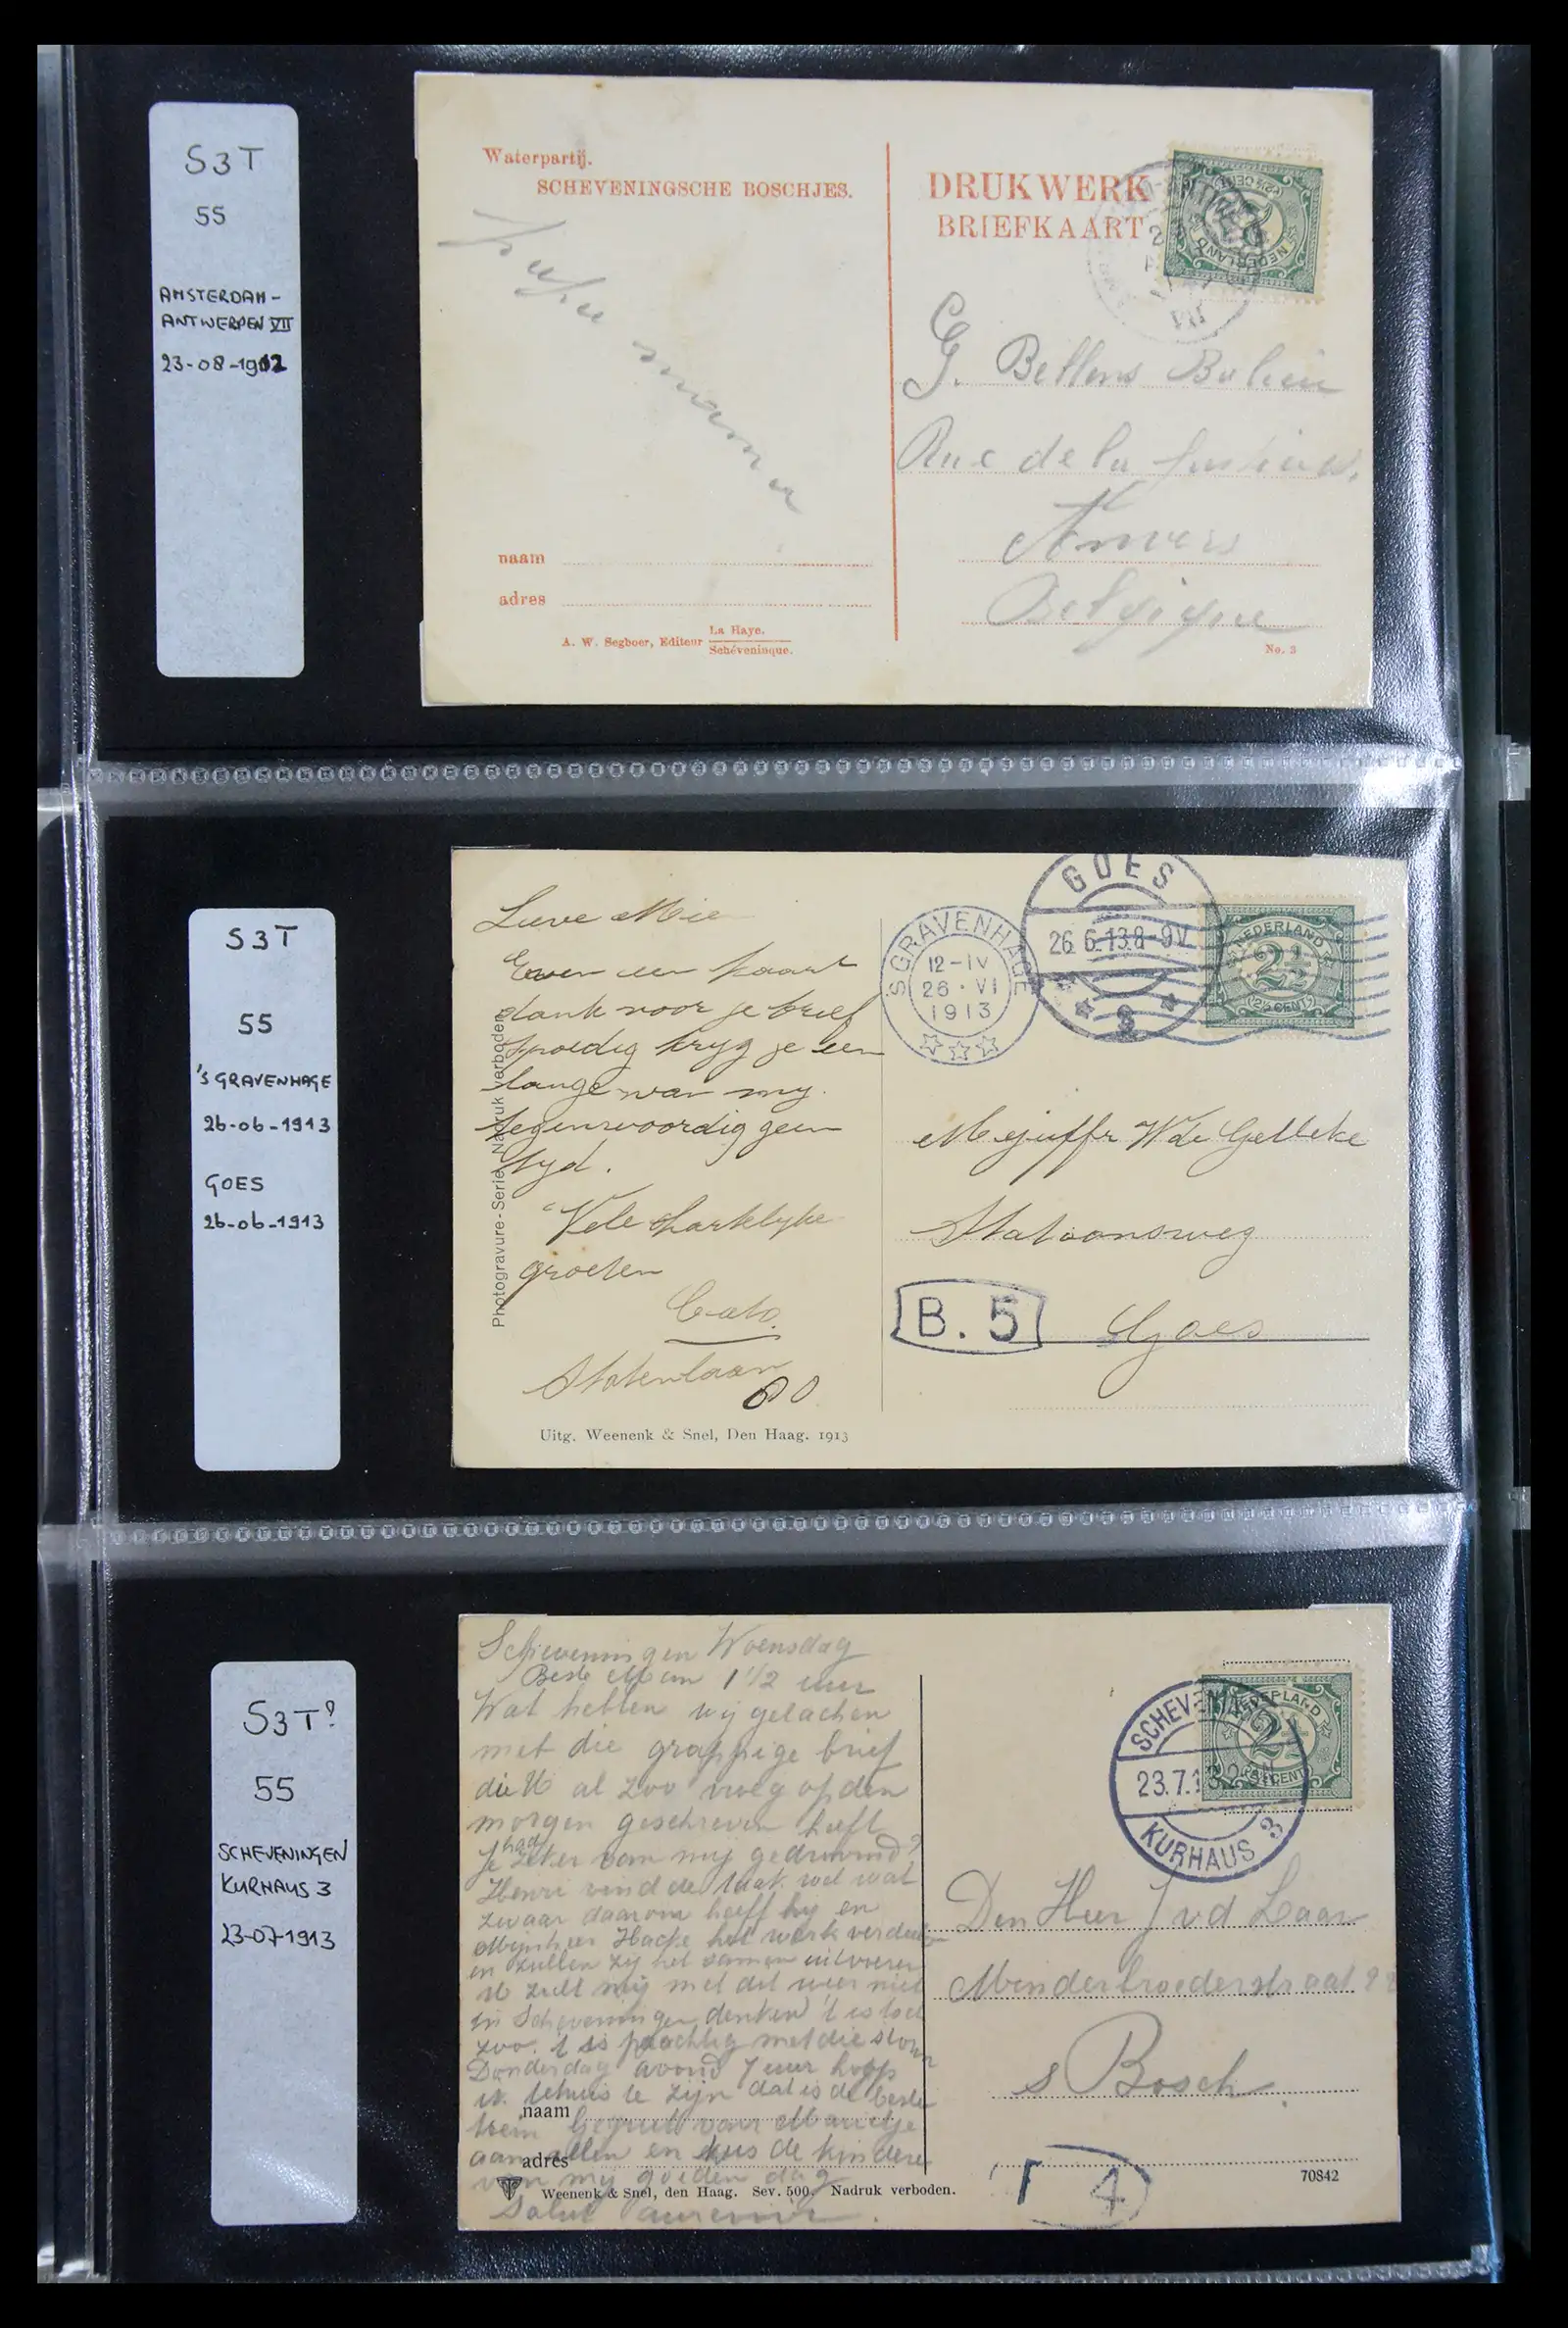 S3T
55
AMSTERDAM-
ANTWERPEN VII
23-08-1912
Waterpartij.
SCHEVENINGSCHE BOSCHJES.
DRUKWERK
BRIEFKAART
NEDERLAND
VII
mama
G. Bellens
Rue de la
Anvers
Belgique
naam
adres
A. W. Segboer, Editeur La Haye.
Schéveninque.
No. 3
S3T
55
'S GRAVENHAGE
26-06-1913
GOES
26-06-1913
Lieve Mie
Even een kaart
dank voor je brief
spoedig kryg je een
lange van my.
tegenwoordig geen
tyd.
Vele hartelyke
groeten
Cato.
Statenlaan
60
Photogravure-Serie. Nadruk verboden
Uitg. Weenenk & Snel, Den Haag. 1913
'S GRAVENHAGE
12-IV
26·VI
1913
GOES
26.6.13.8-9V
NEDERLAND
2½
(2½ CENT)
Mejuffr W de Gelleke
Stationsweg
B. 5
Goes
S3T?
55
SCHEVENINGEN
KURHAUS 3
23-07-1913
Scheveningen Woensdag
Beste Man 1 1/2 uur
Wat hebben wij gelachen
met die grappige brief
die U al zoo vroeg op den
morgen geschreven heeft
Je had zeker van mij gedroomd?
Henri vind de taak wel wat
zwaar daarom heeft hij en
Mijnheer Hacke het werk
en zullen zij het samen uitvoeren
U zult mij met dit weer niet
in Scheveningen denken 't is toch
zoo. 't is prachtig met die
Donderdag avond 7 uur hoop
ik tehuis te zijn dat is de beste
trein Gegroet van Marietje
aan allen en kus de kinderen
van mij goeden dag
Salut
naam
adres
Weenenk & Snel, den Haag. Sev. 500. Nadruk verboden.
KURHAUS 3
23.7.1
NEDERLAND
2½
Den Heer J v d Laar
Minderbroederstraat
s Bosch
4
70842